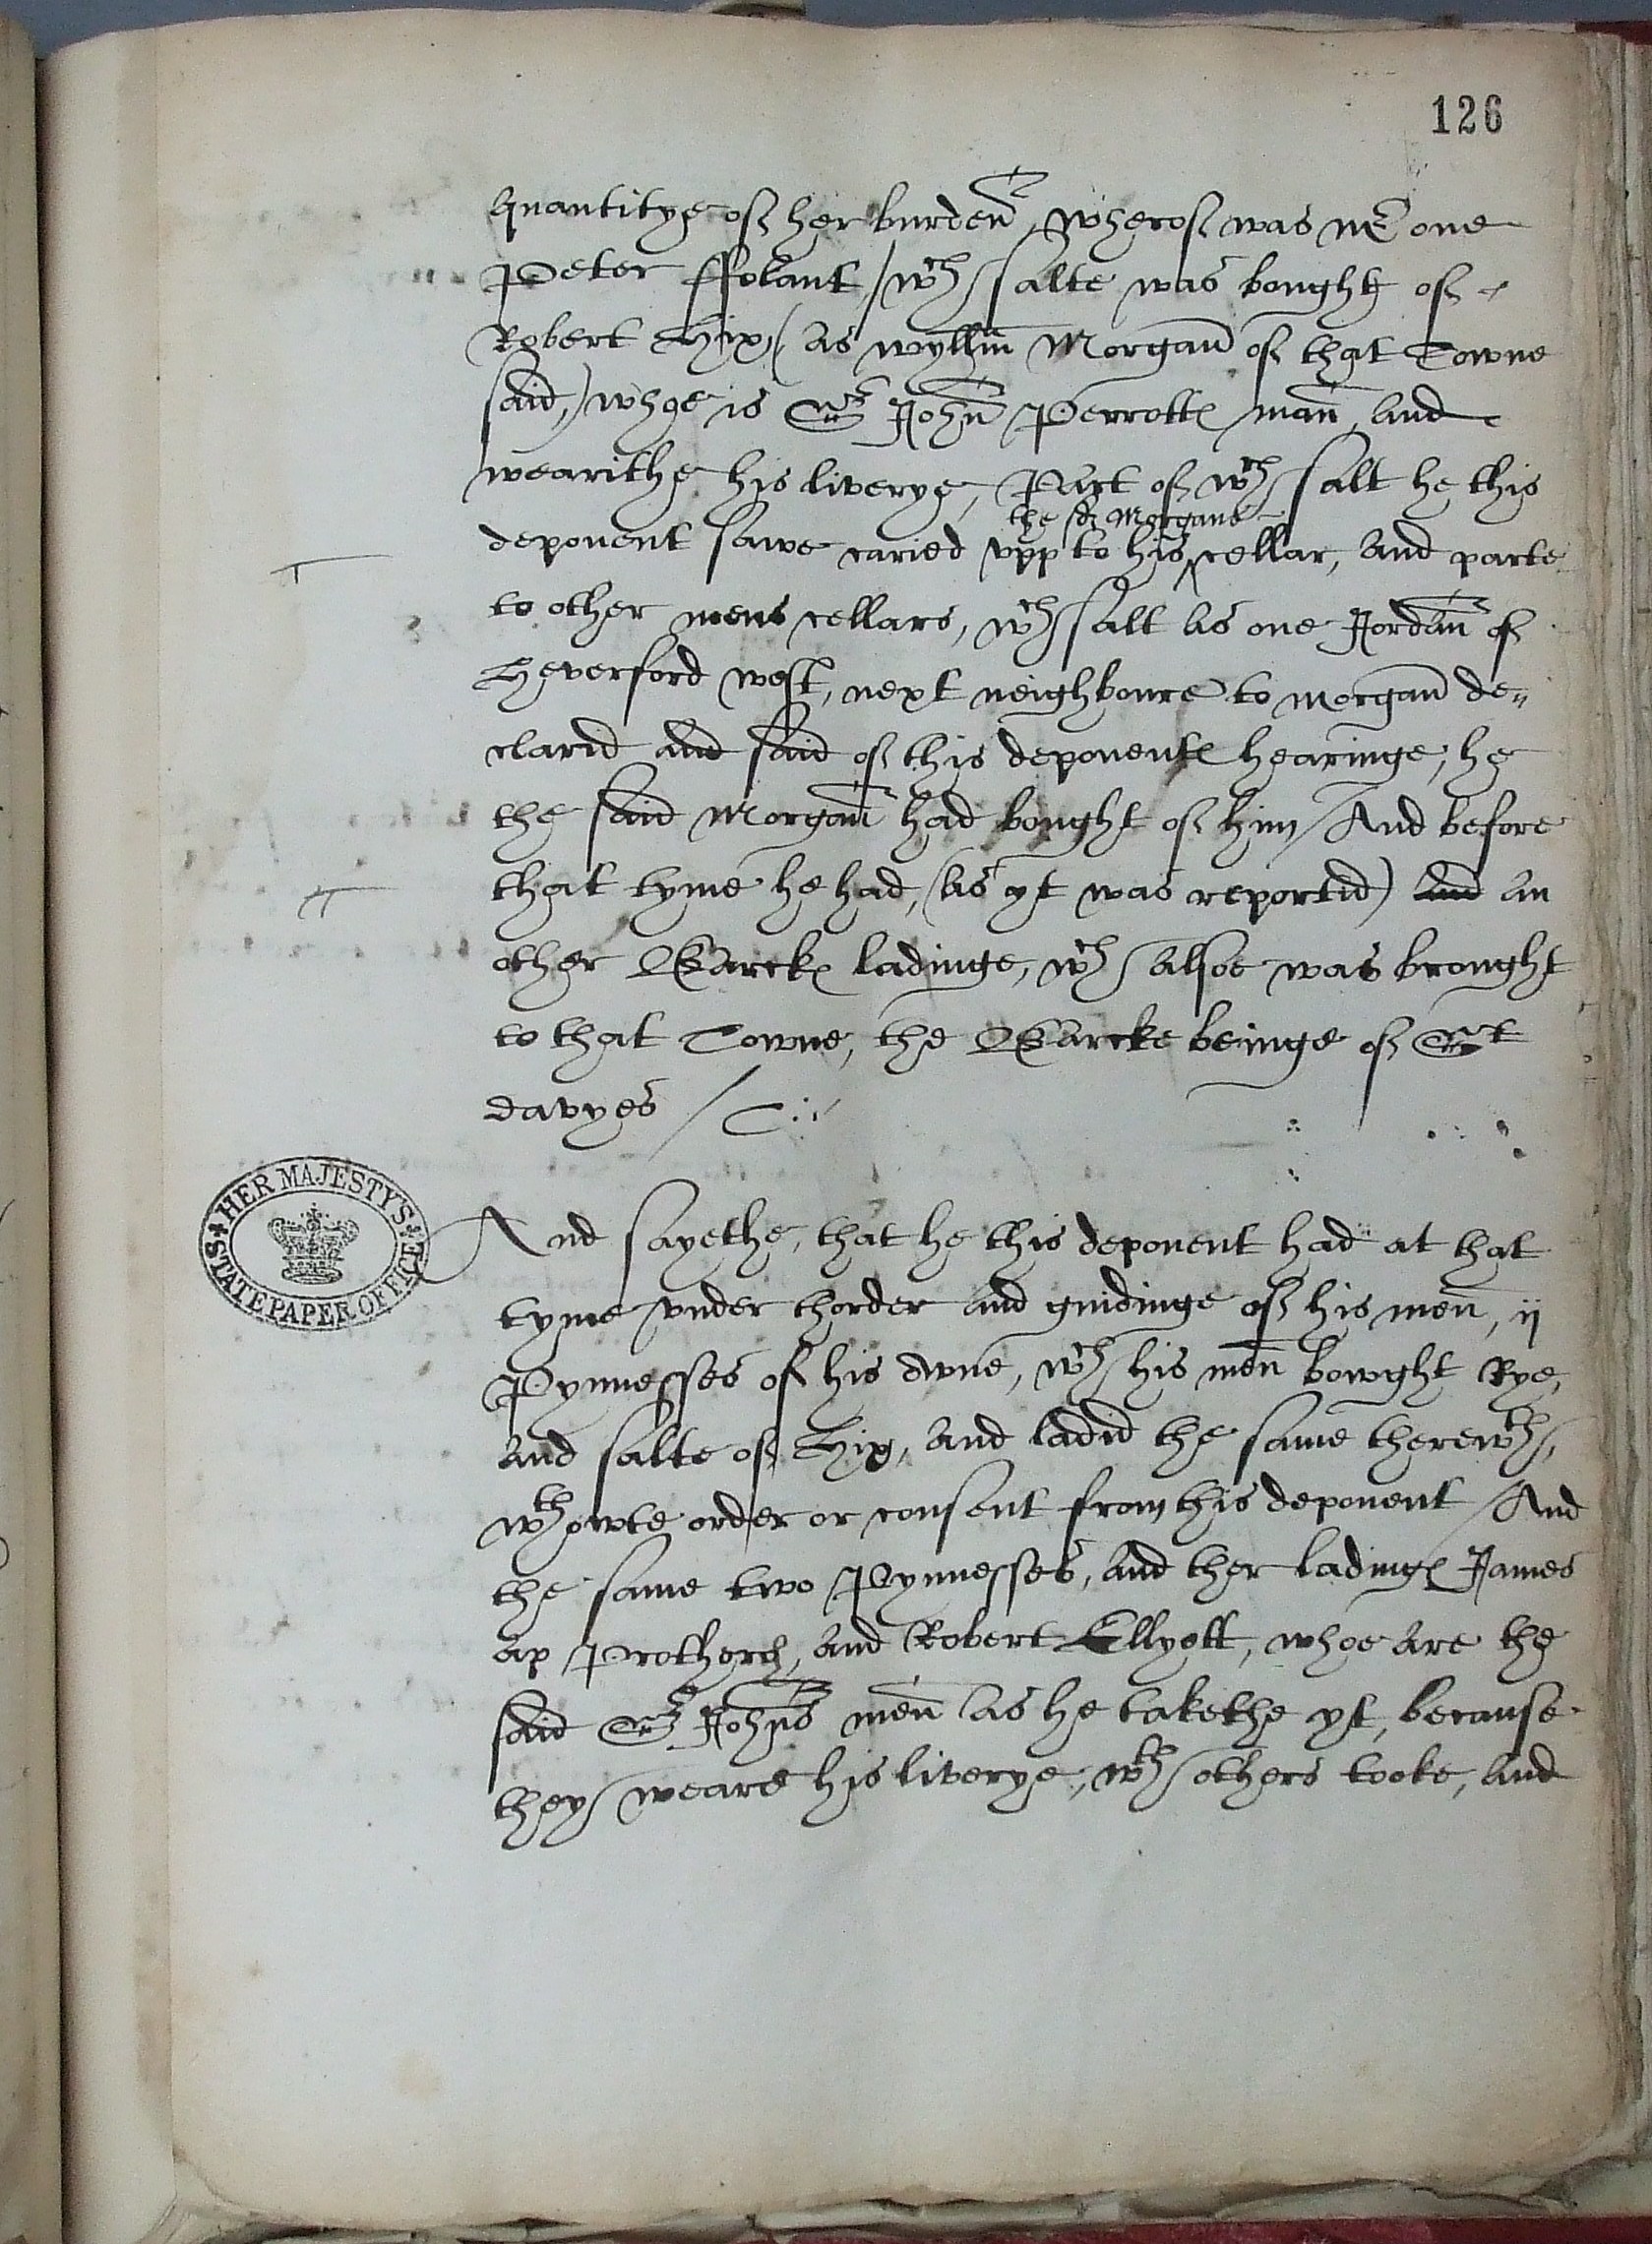 126
quantitye of her burden, wherof was mr one
Peter ffolant / wch salte was bought of
Robert Hix, (as wyllm Morgan of that Towne
said,) whoe is Sr John Perrottes man, and
wearithe his liverye, Part of wch salt he this
the sd Morgans
deponent sawe caried vpp to his ^ cellar, and parte
to other mens cellars, wch salt as one Jordan of
Heverford west, next neighboure to morgan de„
clarid and said of this deponentes hearinge, he
the said Morgan had bought of him / And before
that tyme he had, (as yt was reportid) and an
other Barckes ladinge, wch alsoe was brought
to that Towne, the Barcke beinge of St
davyes /
And sayethe, that he this deponent had at that
tyme vnder thorder and guidinge of his men, ij
Pynnesses of his owne, wch his men bowght Rye,
and salte of Hix, and ladid the same therewth,
wthowte order or consent from this deponent / And
the same two Pynnesses, and ther ladinges James
ap Protherch, and Robert Ellyott, whoe are the
said Sr Johns men as he takethe yt, because
they weare his liverye, wth others tooke, and
HER MAJESTY'S
STATE PAPER OFFICE